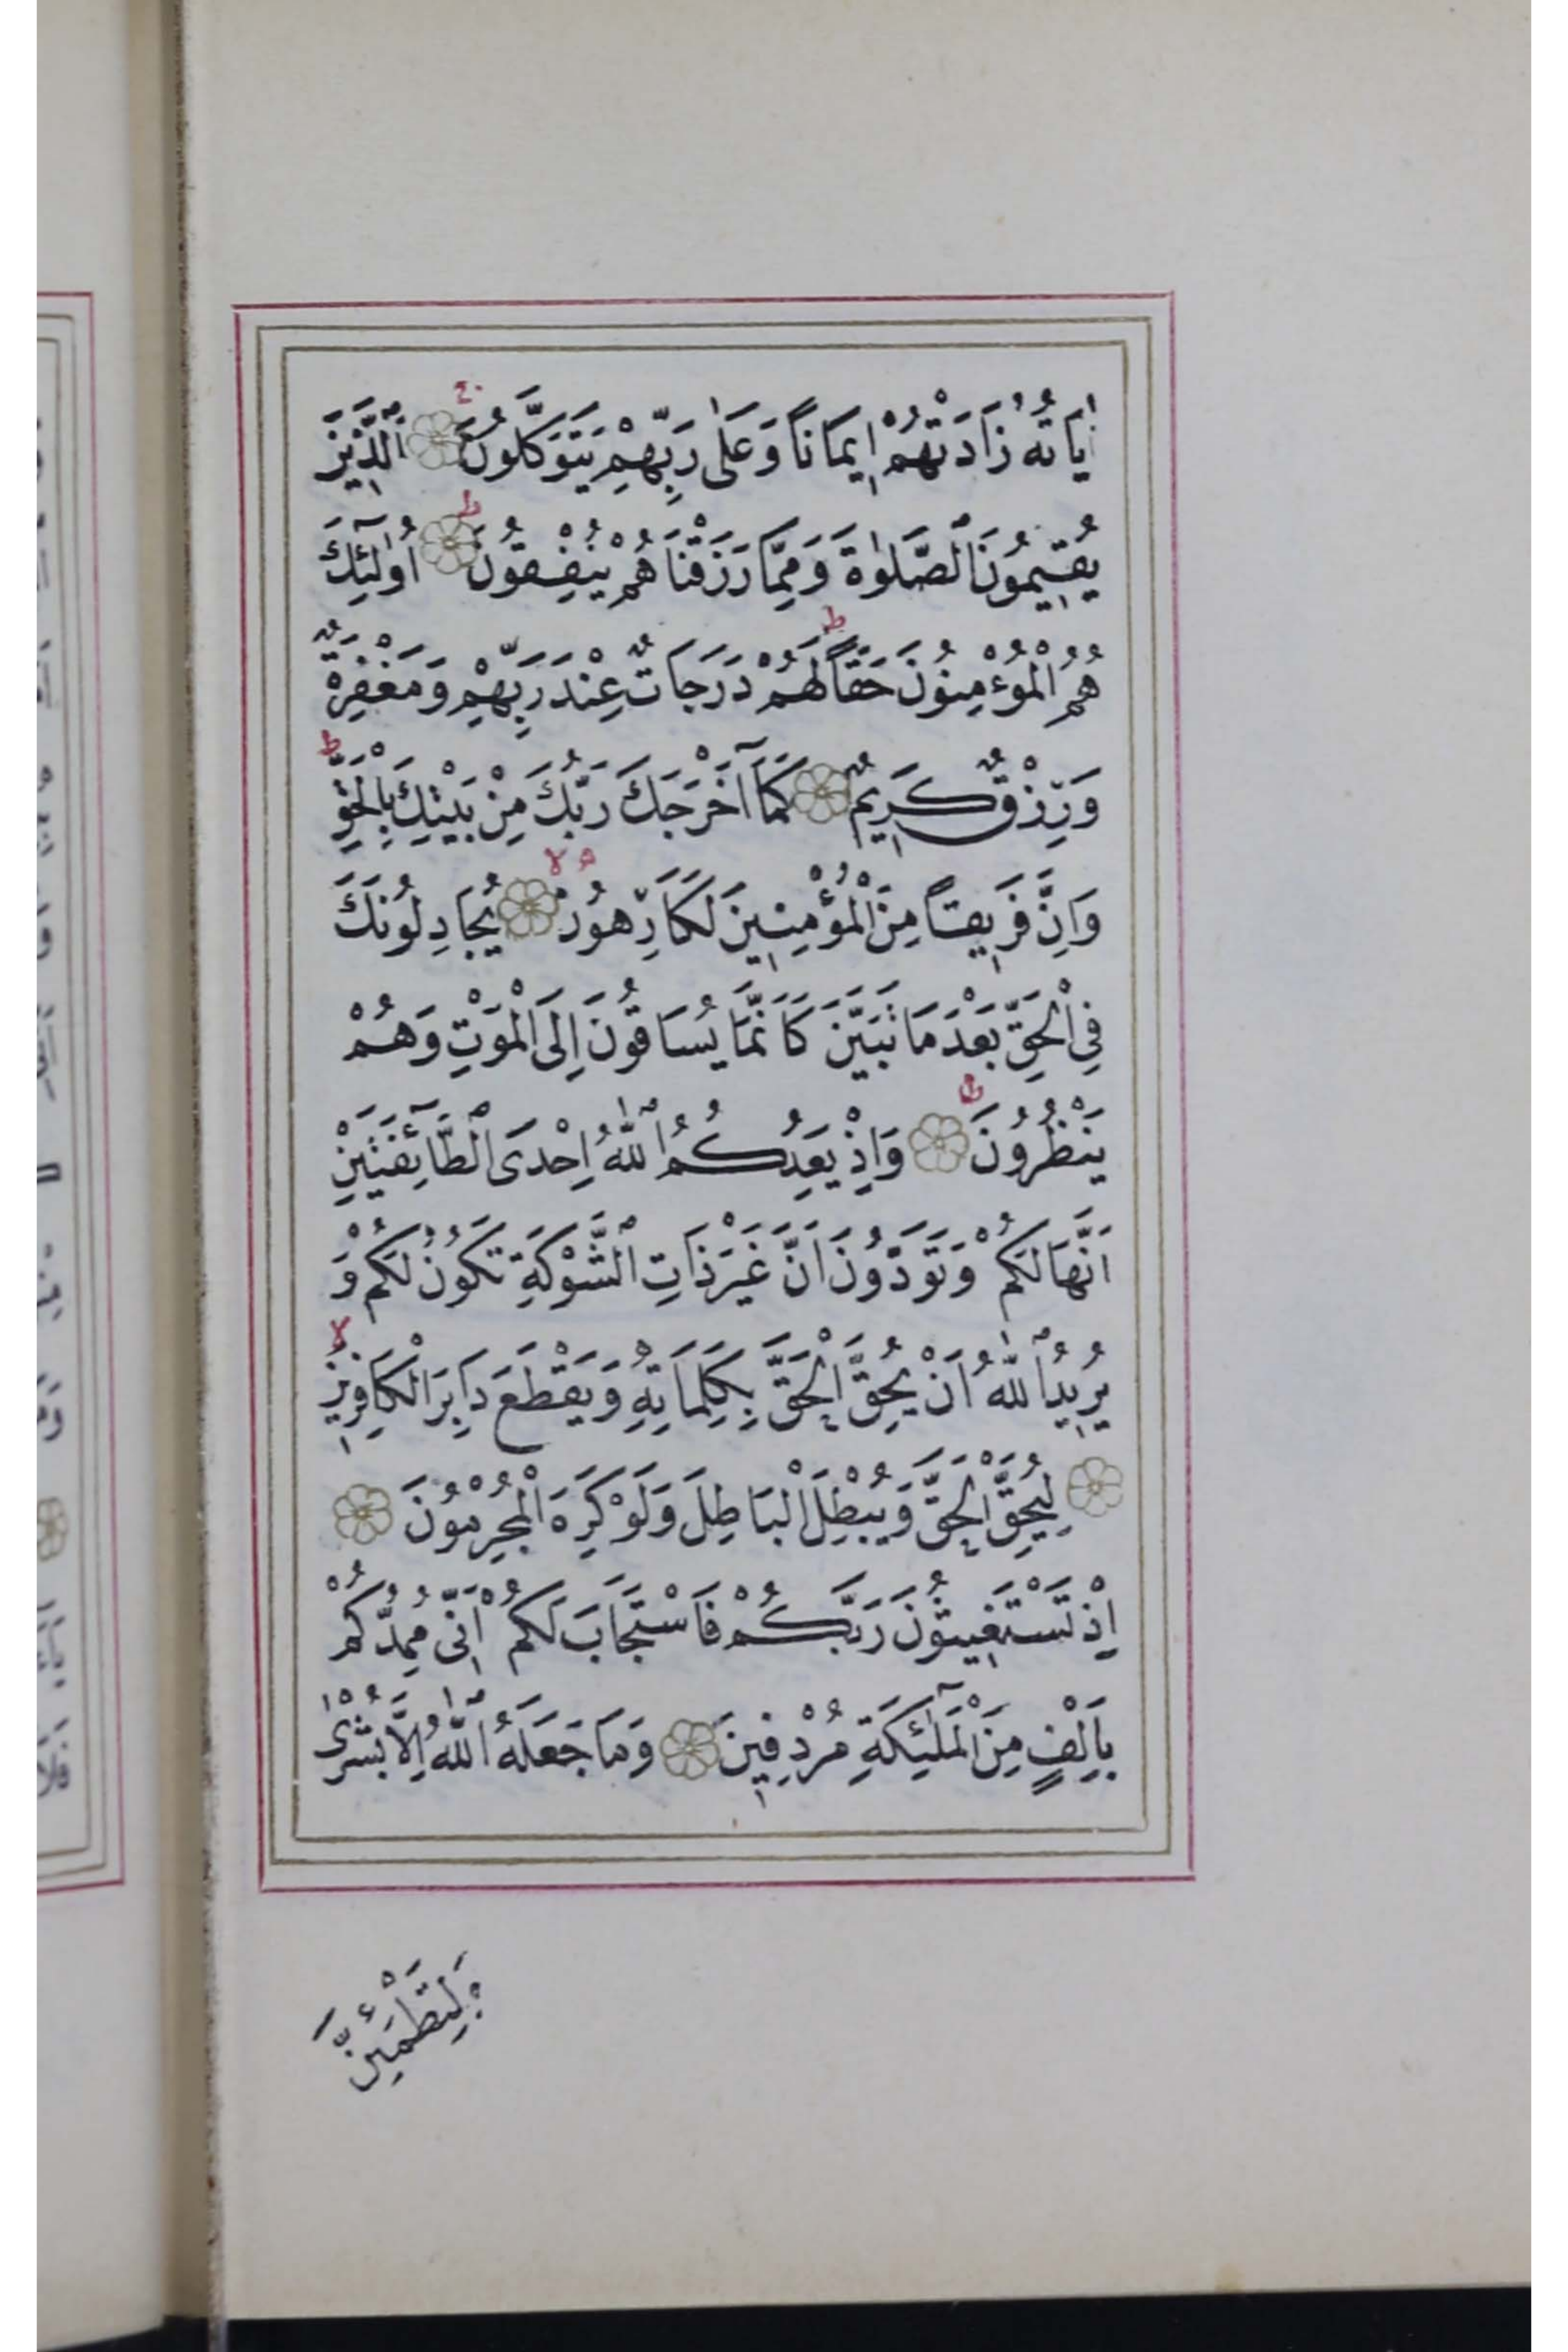 اٰيَاتُهُ زَادَتْهُمْ اِيمَانًا وَعَلٰى رَبِّهِمْ يَتَوَكَّلُونَ ۚ اَلَّذِينَ
يُقِيمُونَ الصَّلٰوةَ وَمِمَّا رَزَقْنَاهُمْ يُنْفِقُونَ ؕ اُولٰٓئِكَ
هُمُ الْمُؤْمِنُونَ حَقًّا ؕ لَهُمْ دَرَجَاتٌ عِنْدَ رَبِّهِمْ وَمَغْفِرَةٌ
وَرِزْقٌ كَرِيمٌ كَمَٓا اَخْرَجَكَ رَبُّكَ مِنْ بَيْتِكَ بِالْحَقِّ ؕ
وَاِنَّ فَرِيقًا مِنَ الْمُؤْمِنِينَ لَكَارِهُونَ ۙ يُجَادِلُونَكَ
فِى الْحَقِّ بَعْدَ مَا تَبَيَّنَ كَاَنَّمَا يُسَاقُونَ اِلَى الْمَوْتِ وَهُمْ
يَنْظُرُونَ ؕ وَاِذْ يَعِدُكُمُ اللّٰهُ اِحْدَى الطَّٓائِفَتَيْنِ
اَنَّهَا لَكُمْ وَتَوَدُّونَ اَنَّ غَيْرَ ذَاتِ الشَّوْكَةِ تَكُونُ لَكُمْ وَ
يُرِيدُ اللّٰهُ اَنْ يُحِقَّ الْحَقَّ بِكَلِمَاتِهِ وَيَقْطَعَ دَابِرَ الْكَافِرِينَ ۙ
لِيُحِقَّ الْحَقَّ وَيُبْطِلَ الْبَاطِلَ وَلَوْ كَرِهَ الْمُجْرِمُونَ
اِذْ تَسْتَغِيثُونَ رَبَّكُمْ فَاسْتَجَابَ لَكُمْ اَنِّى مُمِدُّكُمْ
بِاَلْفٍ مِنَ الْمَلٰٓئِكَةِ مُرْدِفِينَ وَمَا جَعَلَهُ اللّٰهُ اِلَّا بُشْرٰى
وَلِتَطْمَئِنَّ